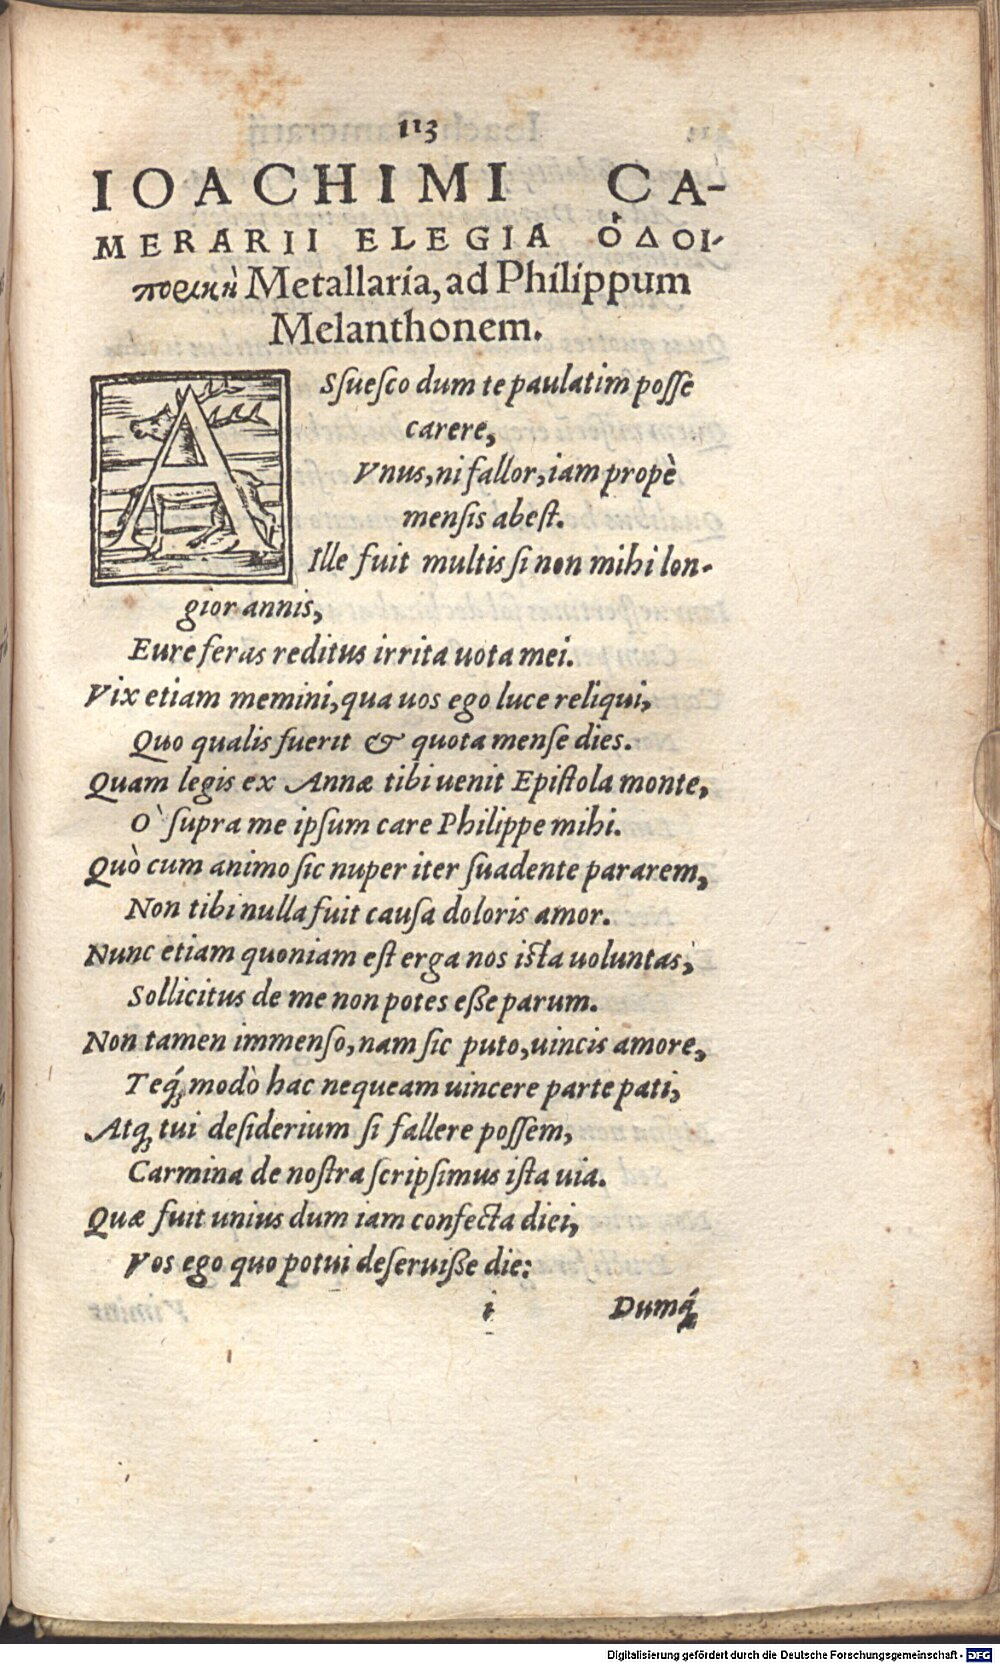 113
IOACHIMI CA-
MERARII ELEGIA ὉΔΟΙ-
πορικὴ Metallaria, ad Philippum
Melanthonem.
ASſueſco dum te paulatim poſſe
carere,
Vnus, ni fallor, iam propè
menſis abeſt.
Ille fuit multis ſi non mihi lon-
gior annis,
Eure feras reditus irrita uota mei.
Vix etiam memini, qua uos ego luce reliqui,
Quo qualis fuerit & quota menſe dies.
Quam legis ex Annæ tibi uenit Epiſtola monte,
O` ſupra me ipſum care Philippe mihi.
Quò cum animo ſic nuper iter ſuadente pararem,
Non tibi nulla fuit cauſa doloris amor.
Nunc etiam quoniam eſt erga nos iſta uoluntas,
Sollicitus de me non potes eße parum.
Non tamen immenſo, nam ſic puto, uincis amore,
Teq́; modò hac nequeam uincere parte pati,
Atq; tui deſiderium ſi fallere poſſem,
Carmina de noſtra ſcripſimus iſta uia.
Quæ fuit unius dum iam confecta diei,
Vos ego quo potui deſeruiße die:
i Dumq́;
Digitalisierung gefördert durch die Deutsche Forschungsgemeinschaft - DFG